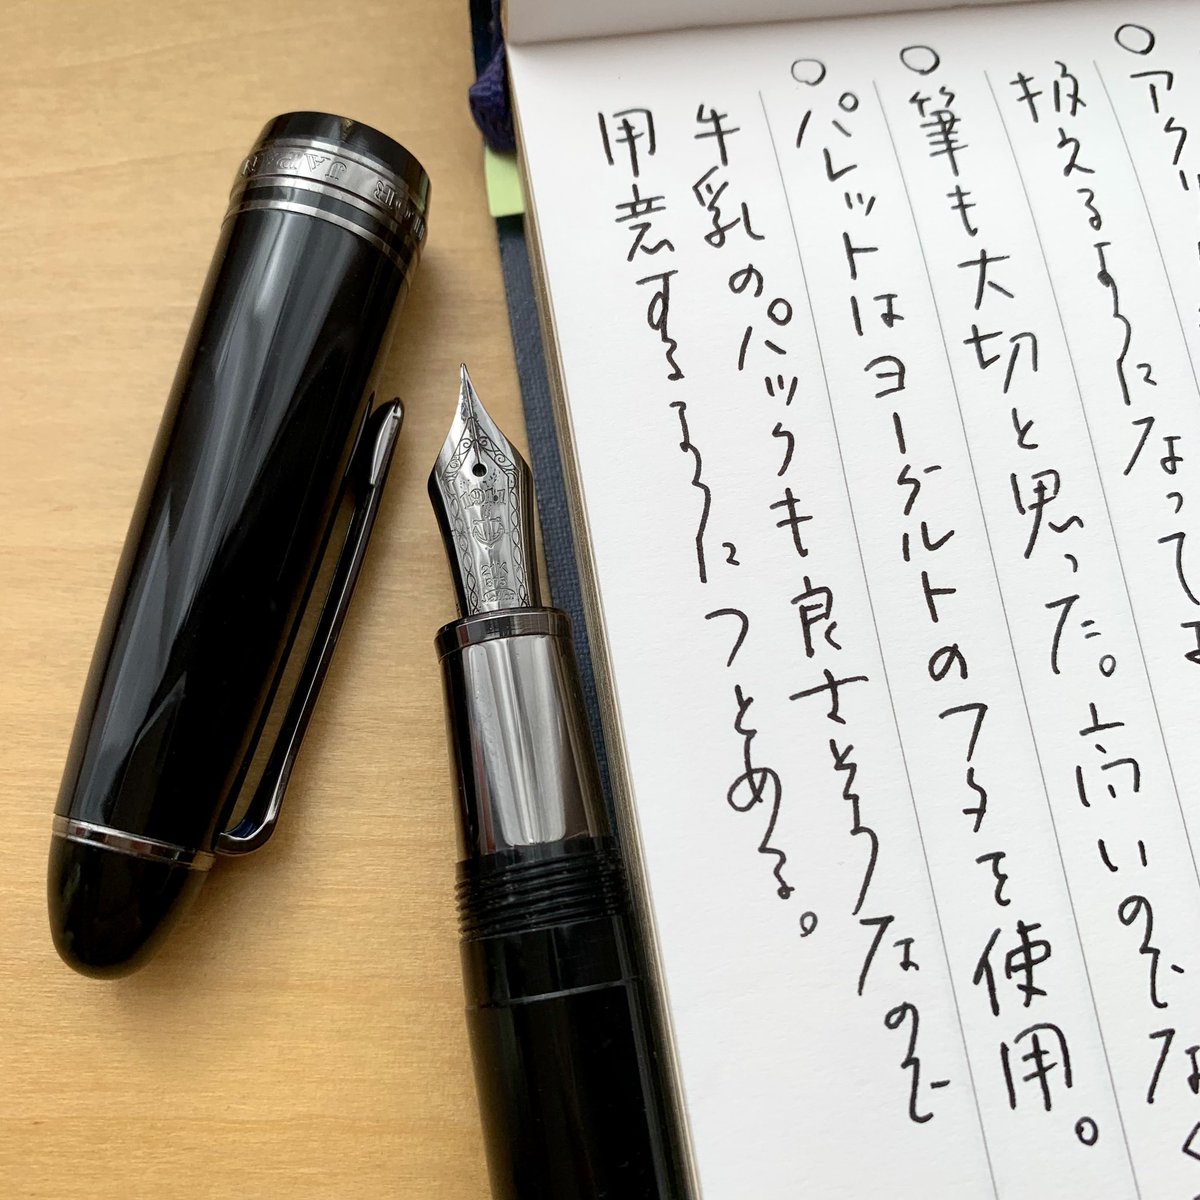 ○アク
扱えるようになってま
○筆も大切と思った。高いのでなく
○パレットはヨーグルトのフタを使用。
牛乳のパックも良さそうなので
用意するようにつとめる。
1911
21K
875
JAPAN